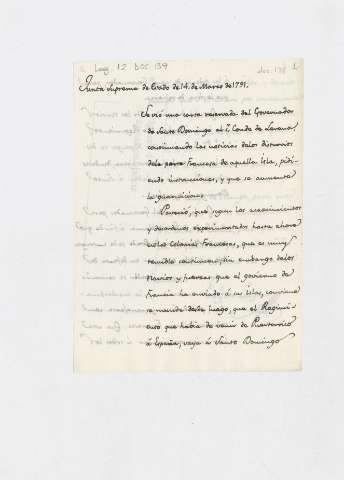 Leg 12 DOC 139 doc. 139 1
Junta suprema de Estado de 14. de Marzo de 1791.
Se vió una carta reservada del Governador
de Santo Domingo al S. Conde de Lerena,
continuando las noticias de los disturvios
de la parte Francesa de aquella Isla, pidi-
endo instrucciones, y que se aumente
la guarnicion.
Pareció, que segun los acaecimientos
y desordenes experimentados hasta ahora
en las Colonias Francesas, que es muy
temible continuen, sin embargo de los
Navíos y fuerzas que el govierno de
Francia ha enviado á sus Islas, conviene
se mande desde luego, que el Regimi-
ento que havia de venir de Puertorrico
á España, vaya á Santo Domingo